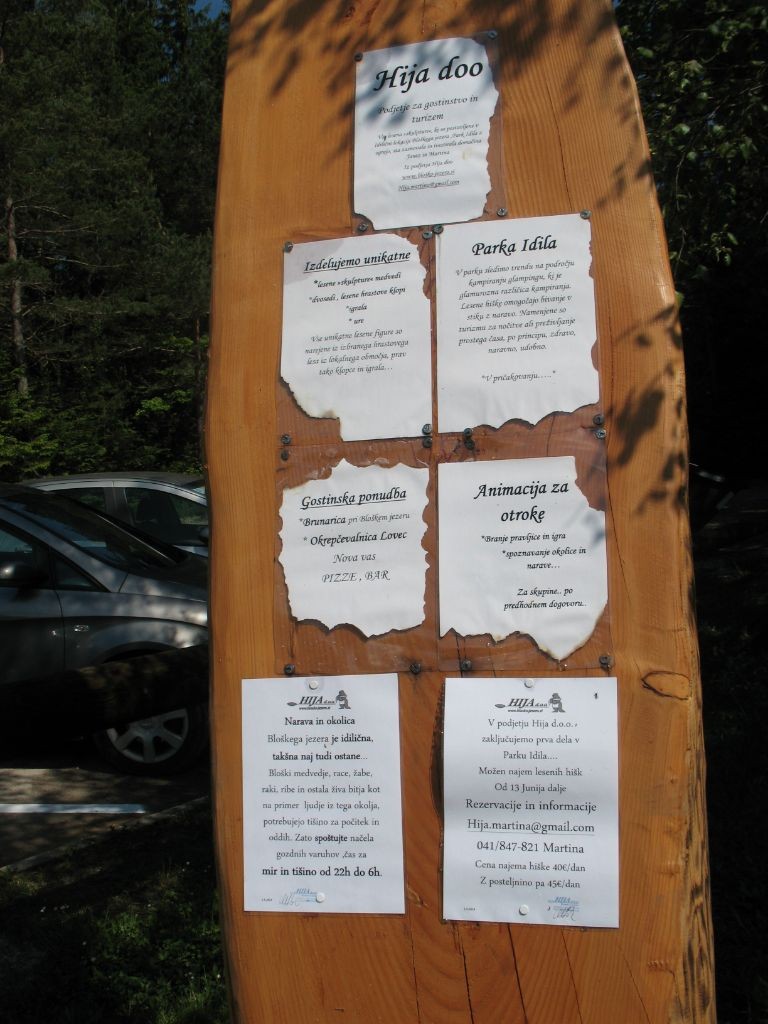 Hija doo
Podjetje za gostinstvo in
turizem
Iz podjetja Hija doo
www.bloško-jezero.si
Hija.martina@gmail.com
Izdelujemo unikatne
*lesene »skulpture« medvedi
*dvosedi, lesene hrastove klopi
*igrala
* ure
Vse unikatne lesene figure so
narejene iz izbranega hrastovega
lesa iz lokalnega območja, prav
tako klopce in igrala...
Parka Idila
V parku sledimo trendu na področju
kampiranju glampingu, ki je
glamurozna različica kampiranja.
Lesene hiške omogočajo bivanje v
stiku z naravo. Namenjene so
turizmu za nočitve ali preživljanje
prostega časa, po principu, zdravo,
naravno, udobno.
"V pričakovanju....."
Gostinska ponudba
*Brunarica pri Bloškem jezeru
* Okrepčevalnica Lovec
Nova vas
PIZZE , BAR
Animacija za
otroke
*Branje pravljice in igra
*spoznavanje okolice in
narave...
Za skupine.. po
predhodnem dogovoru..
HIJA d.o.o.
www.blosko-jezero.si
Narava in okolica
Bloškega jezera je idilična,
takšna naj tudi ostane...
Bloški medvedje, race, žabe,
raki, ribe in ostala živa bitja kot
na primer ljudje iz tega okolja,
potrebujejo tišino za počitek in
oddih. Zato spoštujte načela
gozdnih varuhov ,čas za
mir in tišino od 22h do 6h.
HIJA d.o.o.
www.blosko-jezero.si
V podjetju Hija d.o.o.,
zaključujemo prva dela v
Parku Idila....
Možen najem lesenih hišk
Od 13 Junija dalje
Rezervacije in informacije
Hija.martina@gmail.com
041/847-821 Martina
Cena najema hiške 40€/dan
Z posteljnino pa 45€/dan